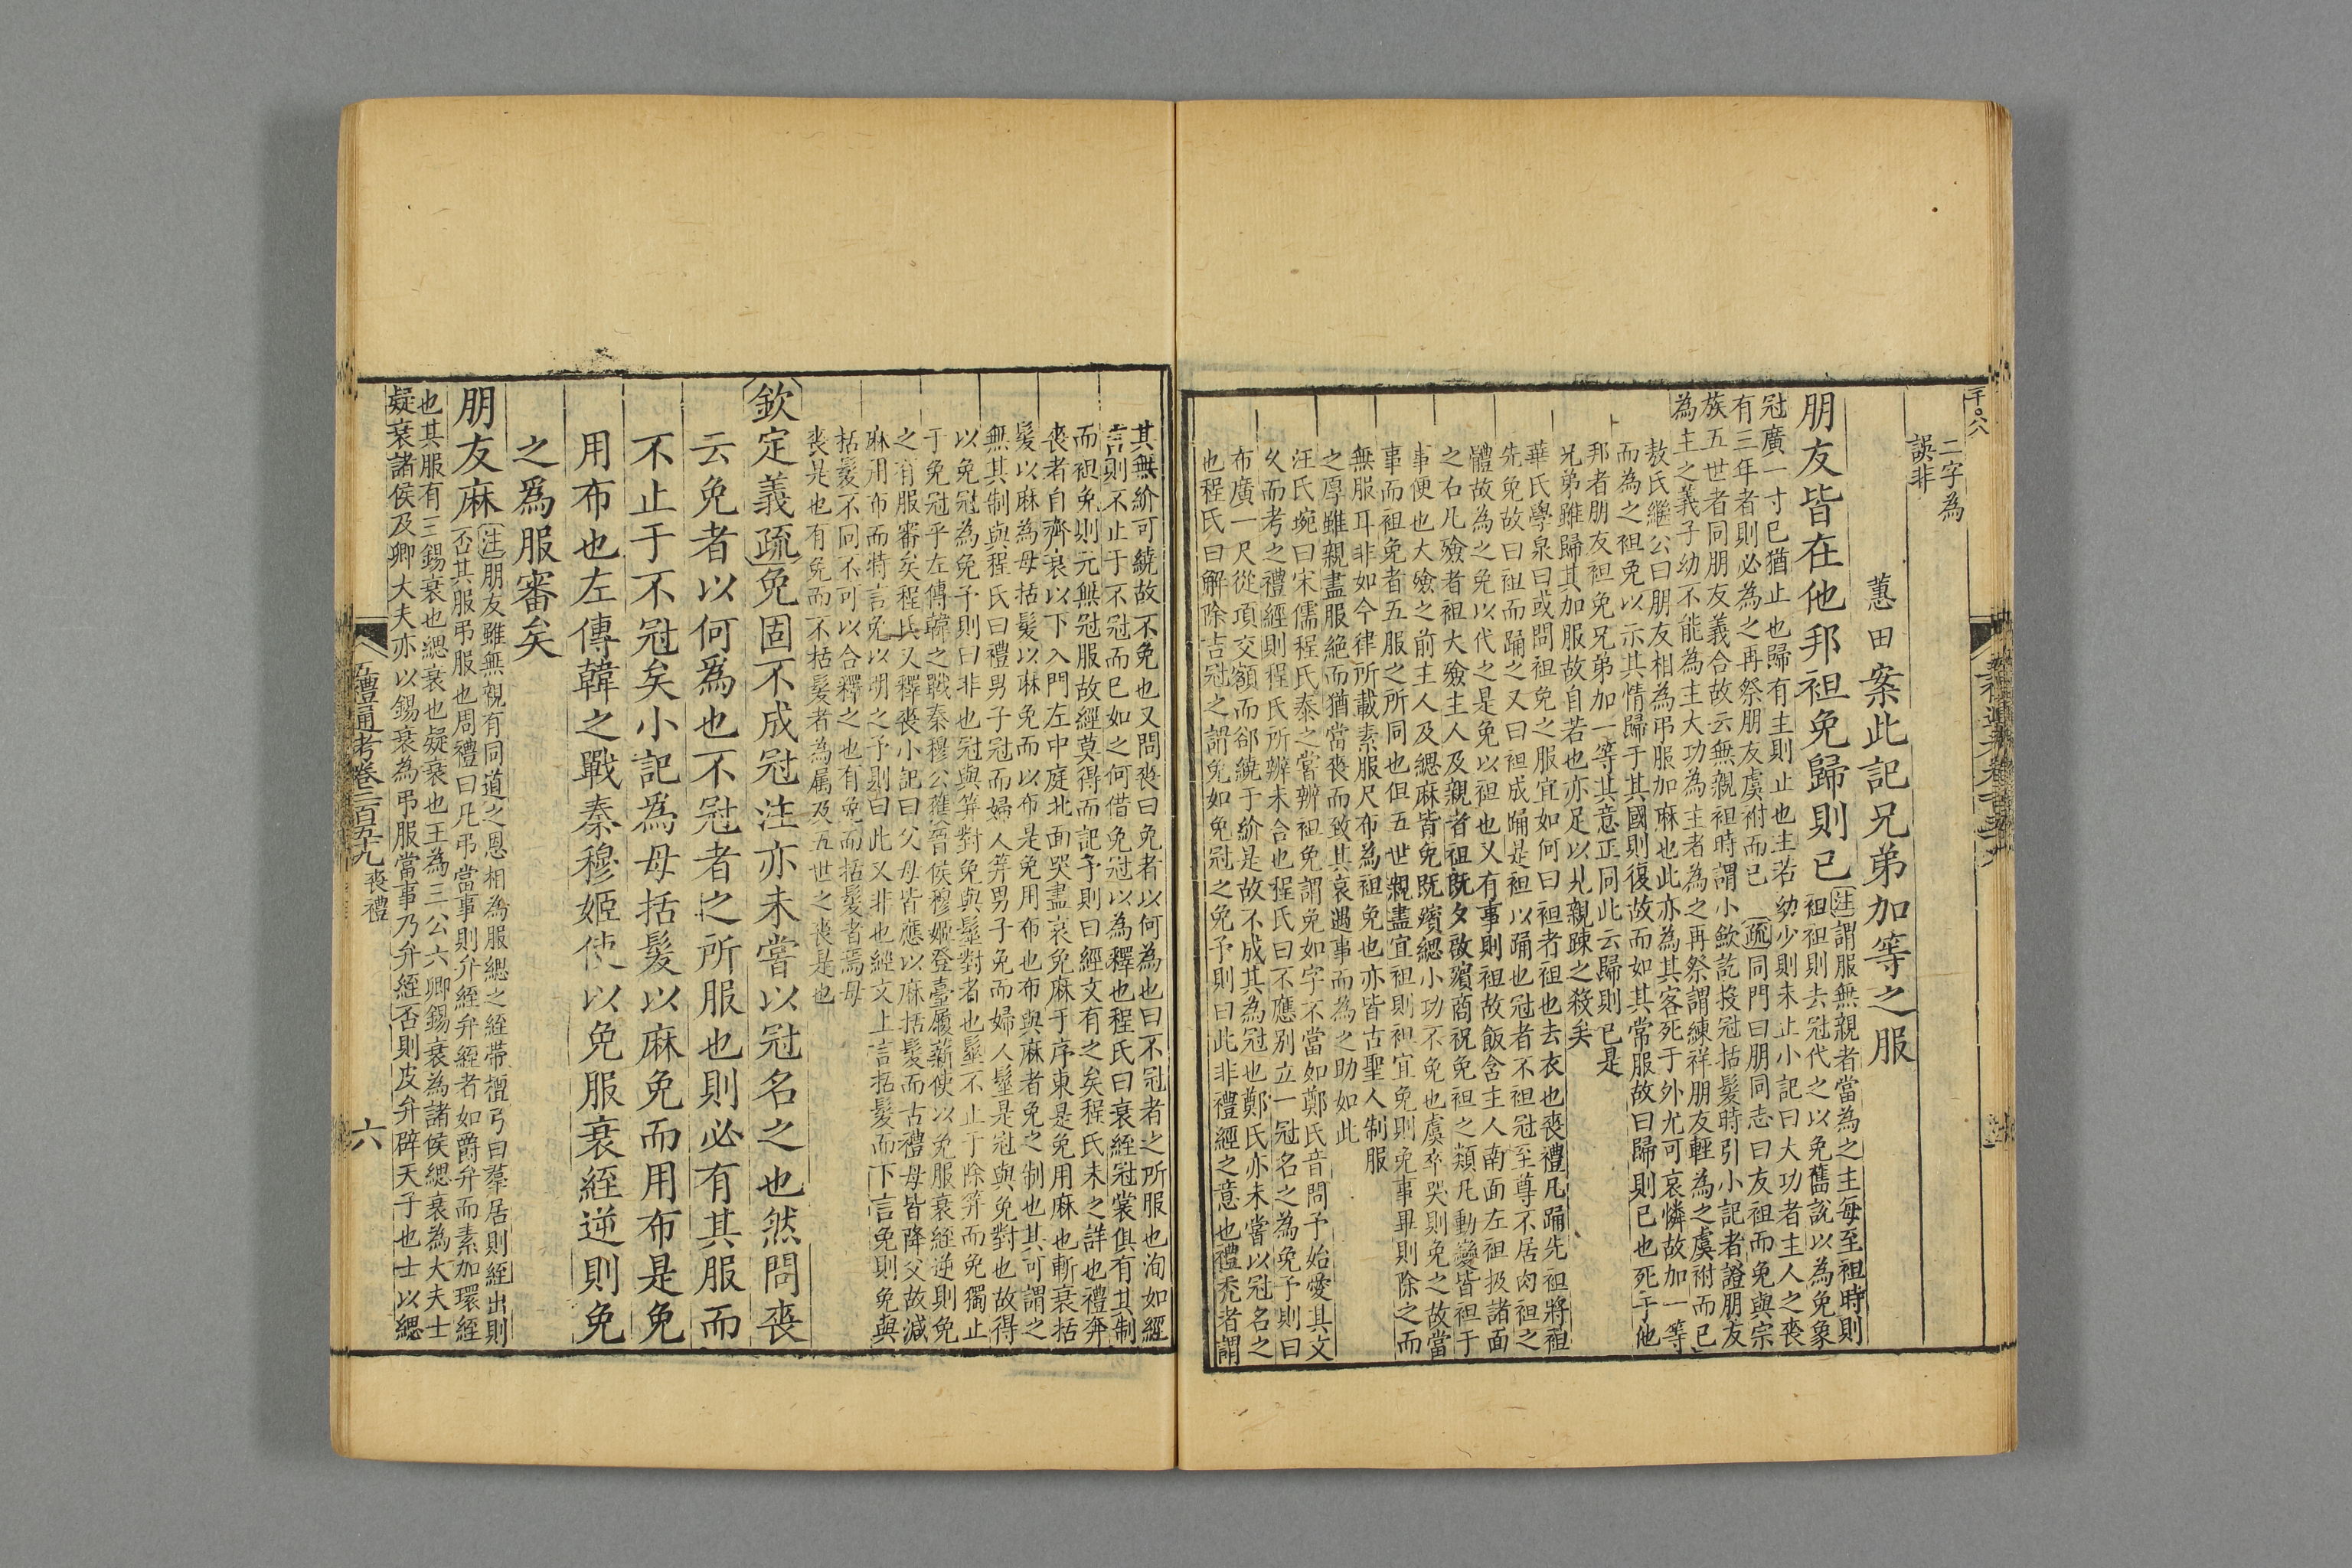 二字為
誤非
蕙田案此記兄弟加等之服
朋友皆在他邦袒免歸則已
注謂服無親者當為之主每至袒時則
袒袒則去冠代之以免舊說以為免象
冠廣一寸已猶止也歸有主則止也主若幼少則未止小記曰大功者主人之喪
有三年者則必為之再祭朋友虞祔而已
疏同門曰朋同志曰友袒而免與宗
族五世者同朋友義合故云無親袒時謂小斂訖投冠括髮時引小記者證朋友
為主之義子幼不能為主大功為主者為之再祭謂練祥朋友輕為之虞祔而已
敖氏繼公曰朋友相為弔服加麻也此亦為其客死于外尤可哀憐故加一等
而為之袒免以示其情歸于其國則復故而如其常服故曰歸則已也死于他
邦者朋友袒免兄弟加一等其意正同此云歸則已是
兄弟雖歸其加服故自若也亦足以見親疎之殺矣
華氏學泉曰或問袒免之服宜如何曰袒者袒也去衣也喪禮凡踊先袒將袒
先免故曰袒而踊之又曰袒成踊是袒以踊也冠者不袒冠至尊不居肉袒之
體故為之免以代之是免以袒也又有事則袒故飯含主人南面左袒扱諸面
之右凡殮者袒大殮主人及親者袒既夕啟殯商祝免袒之類凡動變皆袒于
事便也大殮之前主人及緦麻皆免既殯緦小功不免也虞卒哭則免之故當
事而袒免者五服之所同也但五世親盡宜袒則袒宜免則免事畢則除之而
無服耳非如今律所載素服尺布為袒免也亦皆古聖人制服
之厚雖親盡服絕而猶當喪而致其哀遇事而為之助如此
汪氏琬曰宋儒程氏泰之嘗辨袒免謂免如字不當如鄭氏音問予始愛其文
久而考之禮經則程氏所辨未合也程氏曰不應別立一冠名之為免予則曰
布廣一尺從項交額而卻繞于紒是故不成其為冠也鄭氏亦未嘗以冠名之
也程氏曰解除吉冠之謂免如免冠之免予則曰此非禮經之意也禮禿者謂
其無紒可繞故不免也又問喪曰免者以何為也曰不冠者之所服也洵如經
言則不止于不冠而已如之何借免冠以為釋也程氏曰衰絰冠裳俱有其制
而袒免則元無冠服故經莫得而記予則曰經文有之矣程氏未之詳也禮奔
喪者自齊衰以下入門左中庭北面哭盡哀免麻于序東是免用麻也斬衰括
髮以麻為母括髮以麻免而以布是免用布也布與麻者免之制也其可謂之
無其制與程氏曰禮男子冠而婦人笄男子免而婦人髽是冠與免對也故得
以免冠為免予則曰非也冠與笄對免與髽對者也髽不止于除笄而免獨止
于免冠乎左傳韓之戰秦穆公獲晉侯穆姬登臺履薪使以免服衰絰逆則免
之有服審矣程氏又釋喪小記曰父母皆應以麻括髮而古禮母皆降父故減
麻用布而特言免以明之予則曰此又非也經文上言括髮而下言免則免與
括髮不同不可以合釋之也有免而括髮者焉母
喪是也有免而不括髮者為屬及五世之喪是也
欽定義疏免固不成冠注亦未嘗以冠名之也然問喪
云免者以何爲也不冠者之所服也則必有其服而
不止于不冠矣小記爲母括髮以麻免而用布是免
用布也左傳韓之戰秦穆姬使以免服衰絰逆則免
之爲服審矣
朋友麻
注朋友雖無親有同道之恩相為服緦之絰帶檀弓曰羣居則絰出則
否其服弔服也周禮曰凡弔當事則弁絰弁絰者如爵弁而素加環絰
也其服有三錫衰也緦衰也疑衰也王為三公六卿錫衰為諸侯緦衰為大夫士
疑衰諸侯及卿大夫亦以錫衰為弔服當事乃弁絰否則皮弁辟天子也士以緦
五禮通考卷二百五十九 喪禮
六